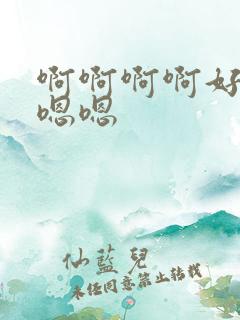 啊啊啊啊好
嗯嗯
仙蓝儿
未经同意禁止转载